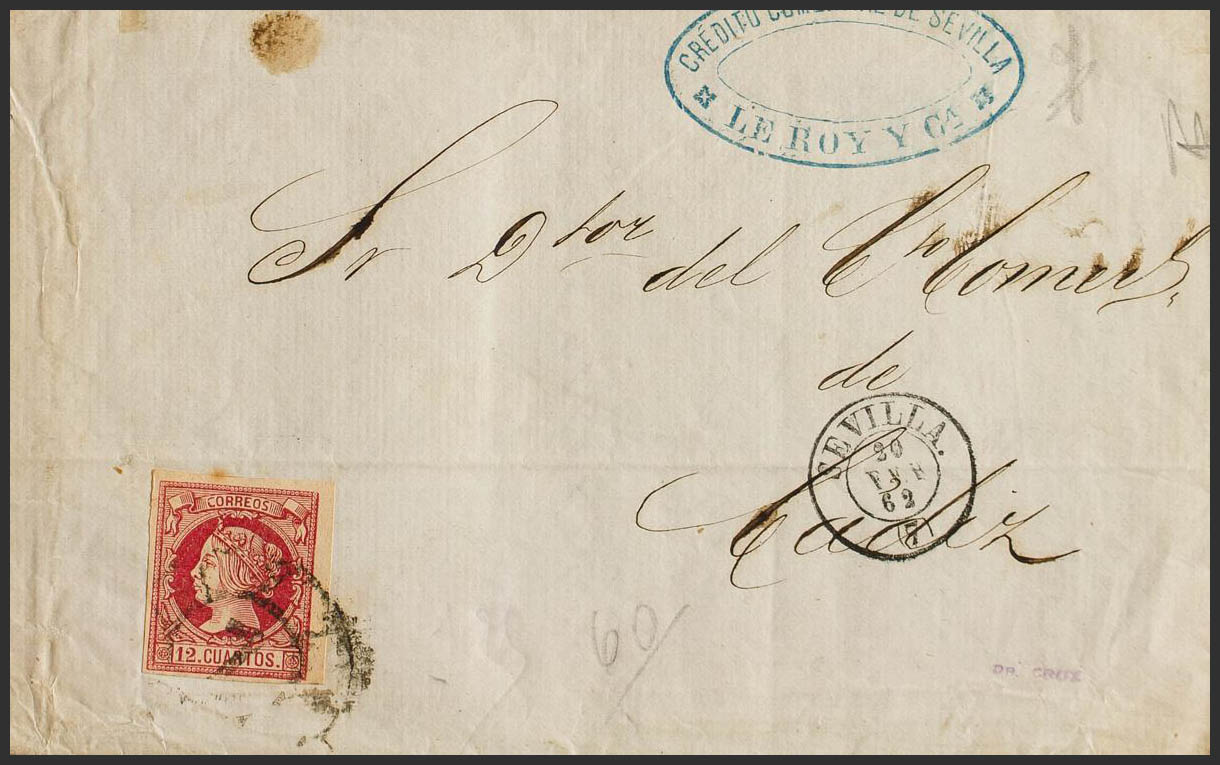 CRÉDITO COMERCIAL DE SEVILLA
LE ROY Y Cª
Sr Dtor del
de
Cadiz
SEVILLA.
20
ENE
62
(7)
CORREOS
12. CUARTOS.
60
DR. CRUZ